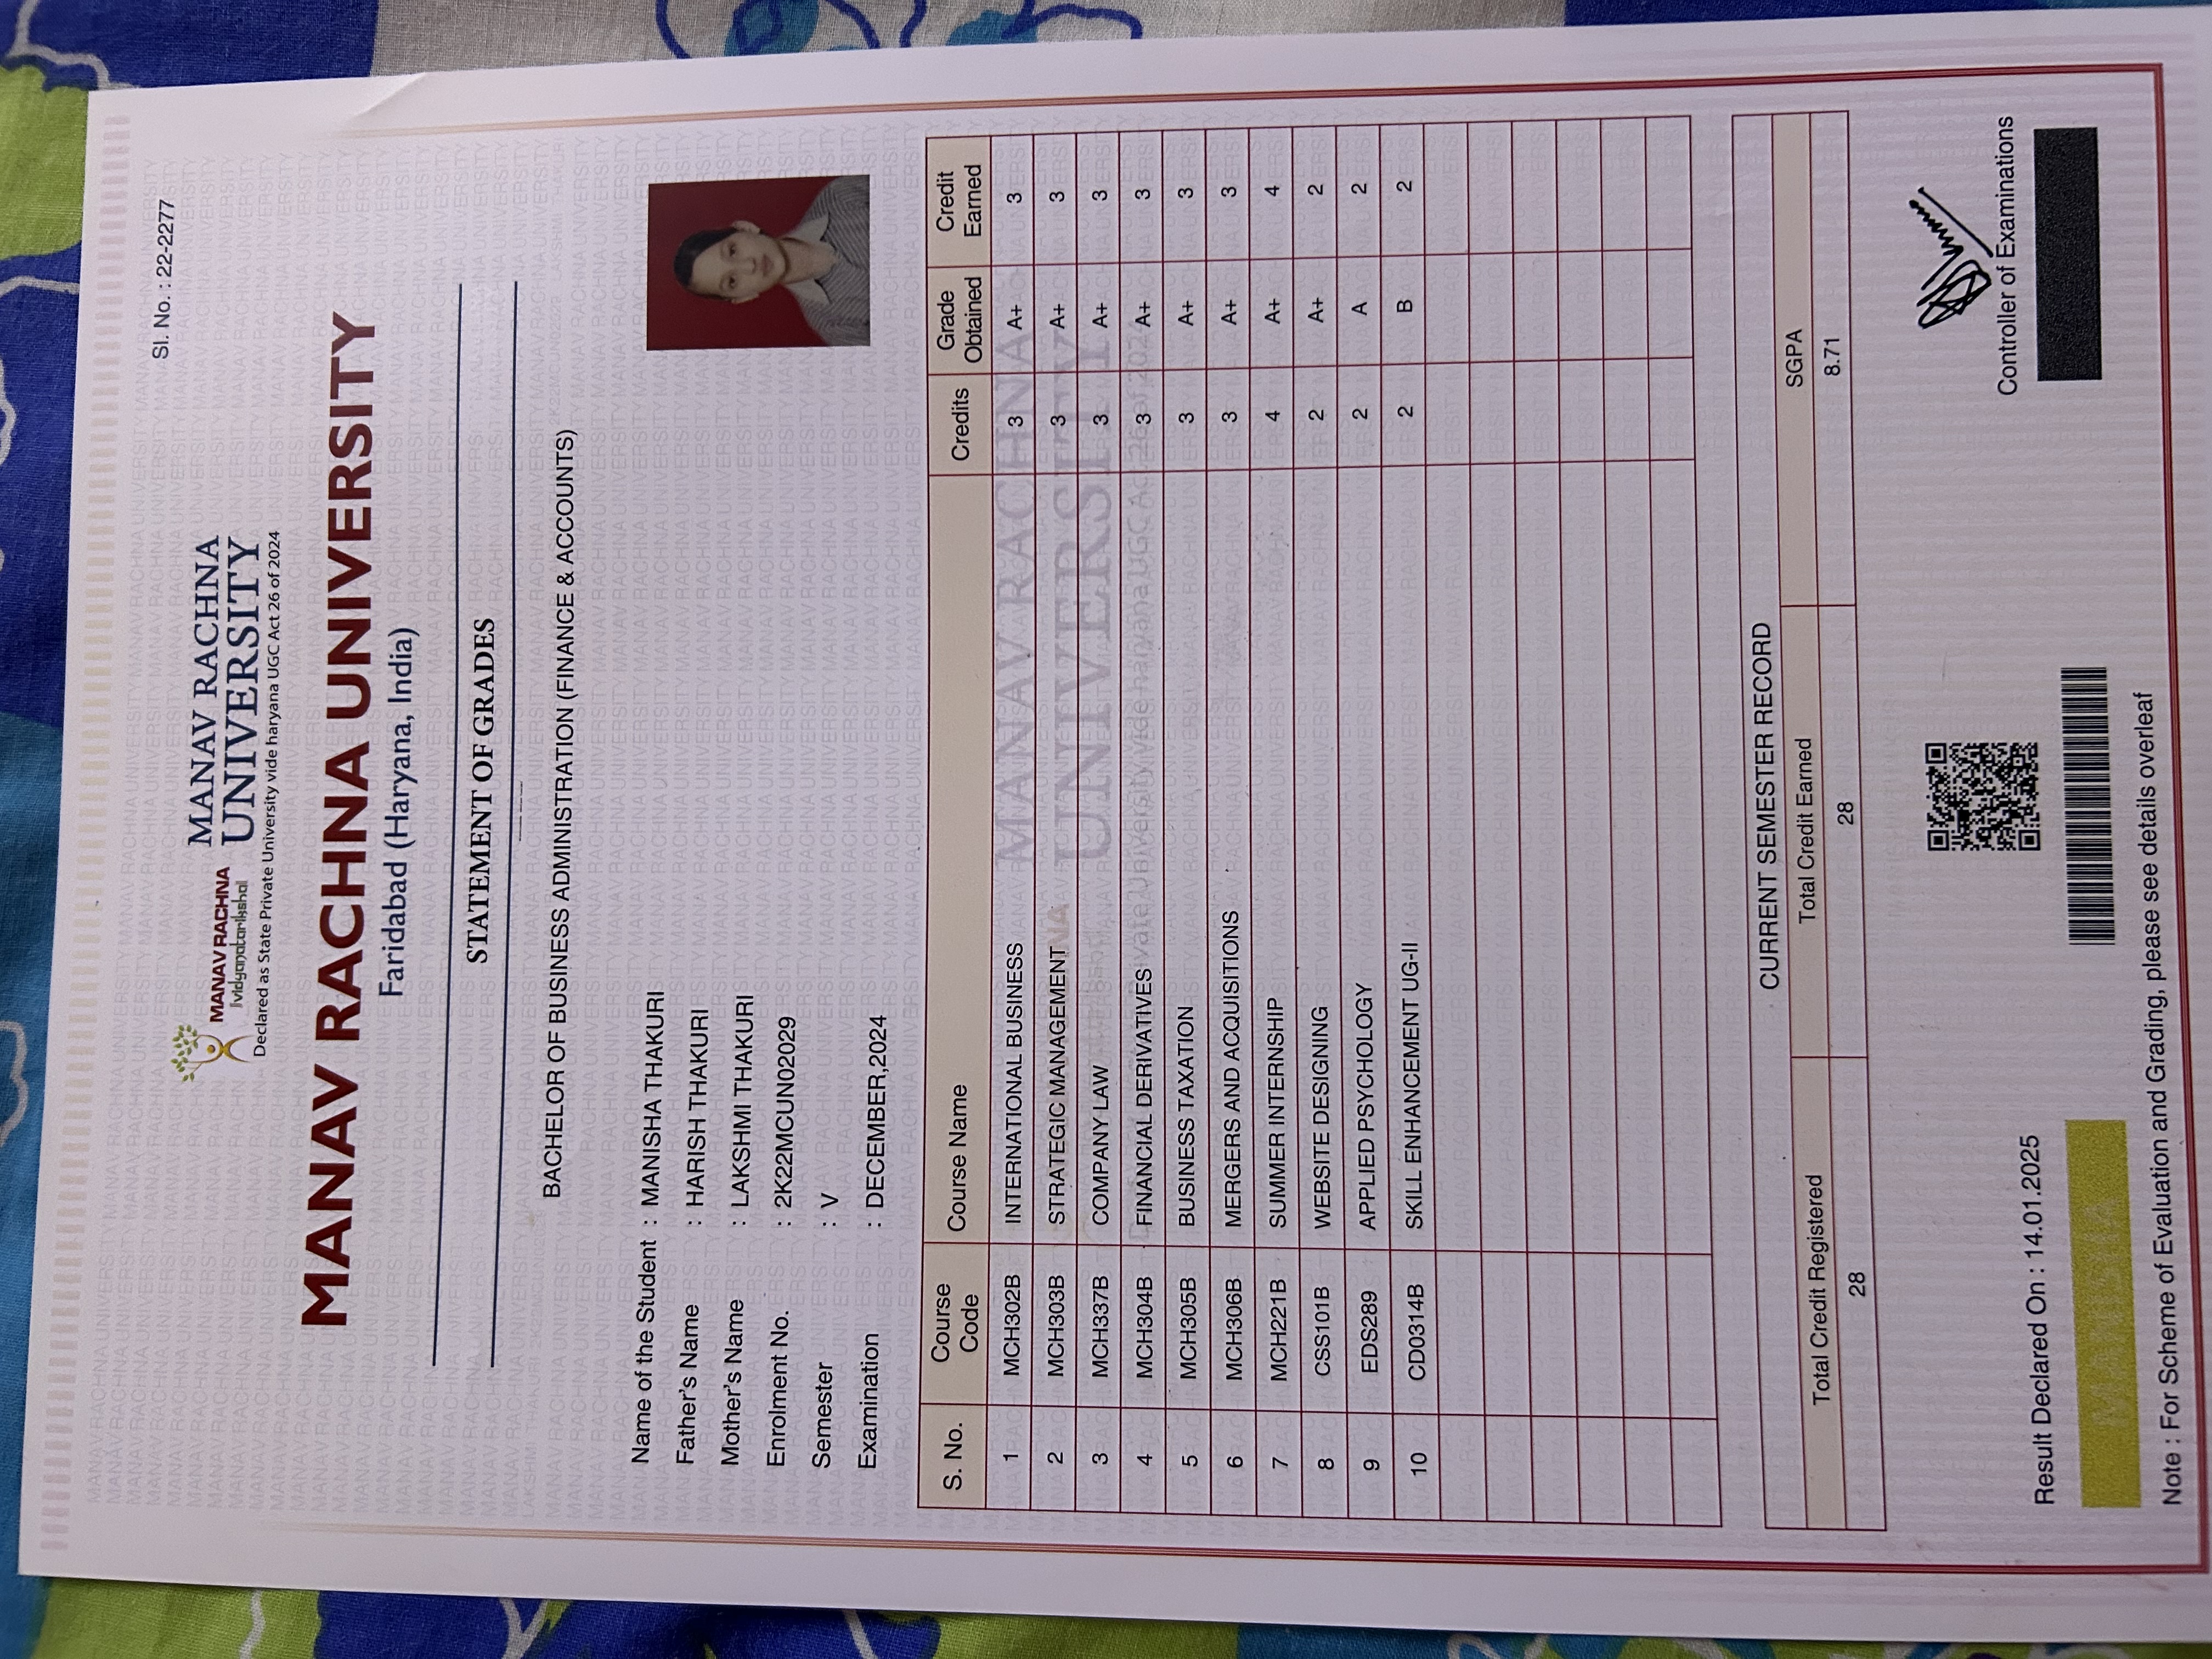 Sl. No. : 22-2277
MANAV RACHNA
vidyanatariksha
MANAV RACHNA
UNIVERSITY
Declared as State Private University vide haryana UGC Act 26 of 2024
MANAV RACHNA UNIVERSITY
Faridabad (Haryana, India)
STATEMENT OF GRADES
BACHELOR OF BUSINESS ADMINISTRATION (FINANCE & ACCOUNTS)
Name of the Student : MANISHA THAKURI
Father's Name : HARISH THAKURI
Mother's Name : LAKSHMI THAKURI
Enrolment No. : 2K22MCUN02029
Semester : V
Examination : DECEMBER,2024
S. No. Course Code Course Name Credits Grade Obtained Credit Earned
1 MCH302B INTERNATIONAL BUSINESS 3 A+ 3
2 MCH303B STRATEGIC MANAGEMENT 3 A+ 3
3 MCH337B COMPANY LAW 3 A+ 3
4 MCH304B FINANCIAL DERIVATIVES 3 A+ 3
5 MCH305B BUSINESS TAXATION 3 A+ 3
6 MCH306B MERGERS AND ACQUISITIONS 3 A+ 3
7 MCH221B SUMMER INTERNSHIP 4 A+ 4
8 CSS101B WEBSITE DESIGNING 2 A+ 2
9 EDS289 APPLIED PSYCHOLOGY 2 A 2
10 CD0314B SKILL ENHANCEMENT UG-II 2 B 2
CURRENT SEMESTER RECORD
Total Credit Registered Total Credit Earned SGPA
28 28 8.71
Result Declared On : 14.01.2025
Controller of Examinations
Note : For Scheme of Evaluation and Grading, please see details overleaf